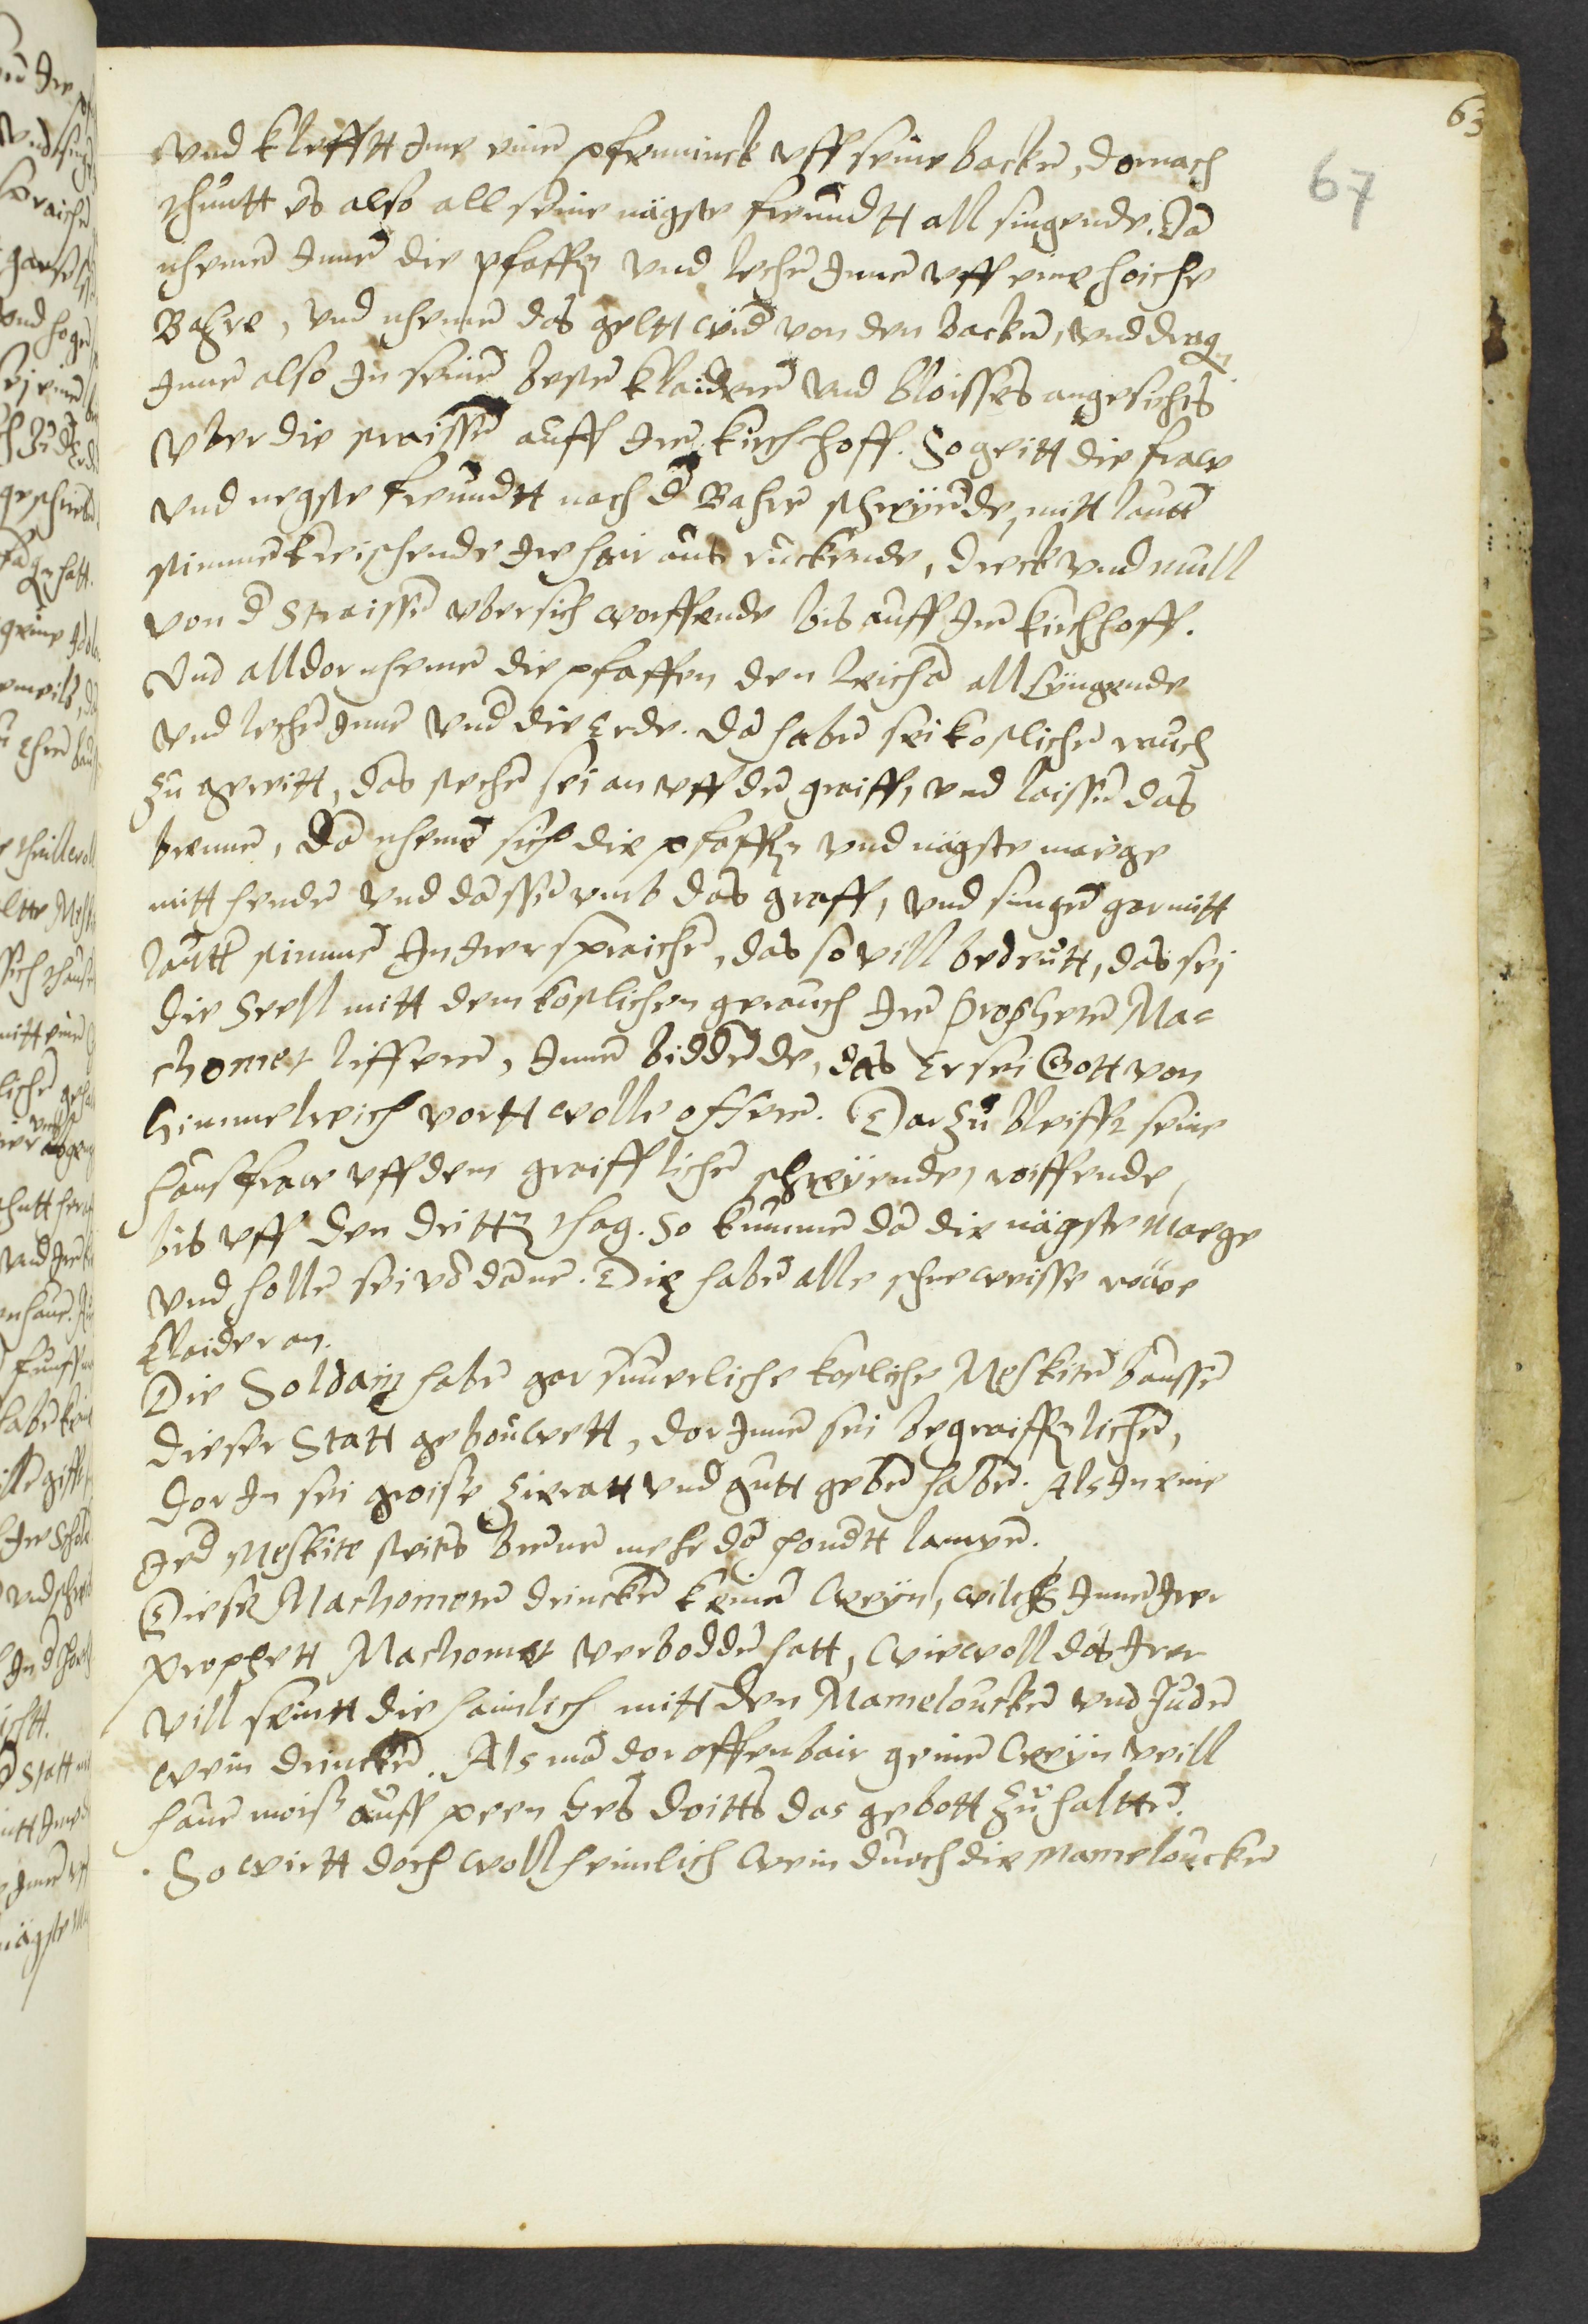 63
67
vnd klefftt Ime einen pfenninck vff seine backen, dornach
thuntt es also all seine nägste freundtt all singende. Da
nhemen Innen die pfaffen vnd lechen Innen vff eine hoiche
Bahre, vnd nhemen das geltt wid von den backen, vnd dragen
Innen also In seinen besten klaideren vnd bloisses angesichts
vber die straissen auff Iren kirchhoff. So geitt die frawe
vnd negste freundtt nach d Bahren schreÿende, mitt lautten
stimmen kreischende Ire hair aus ruckende, dreck vnd mull
von d Straissen vber sich worffende bis auff Iren kirchhoff.
Vnd alldor nhemen die pfaffen den leicham all Syngende
vnd lechen Innen vnd die Erde. Da haben sei kostlichen rauch
zu gereitt, das stechen sei an vff den graiff, vnd laissen das
brennen, Da nhemen sich die pfaffen vnd nägste maege
mitt henden vnd danssen vmb das graff, vnd singen gar mitt
lautter stimmen In Irer spraichen, das so vill bedeutt, das sei
die Seell mitt dem kostlichen gerauch Iren Propheten Ma-
chomet lifferen, Innen biddende, das Er sei Gott von
himmelreich vortt wolle offeren. Dar zu bleifft seine
hausfrawe vff dem graiff lichen schreÿende, roiffende,
bis vff den dritten thag. So kummen da die nägste Maege
vnd hollen sei vo danne. Die haben alle schneweisse rawe
klaider an.
Die Soldain haben gar suuerliche kostliche Meskiten baussen
dieser Statt gebouwett, dor Innen sei begraiffen lichen,
dor In sei groisse zieratt vnd gutt geben haben. Als In eine
Jed Meskite steits brennen mehr da hondtt lampen.
Diese Machometen drincken keinen Weÿn, wilchs Innen Irer
prophett Machomet verbodden hatt, Wiewoll das Irer
vill seintt die haimlich mitt den Mameloucken vnd Juden
wein drincken. Als ma dor offenbair geinen Weÿn veill
hauen mois auff peen des doitts das gebott zu haltten.
So wirtt doch woll heimlich Wein durch die Mameloucken